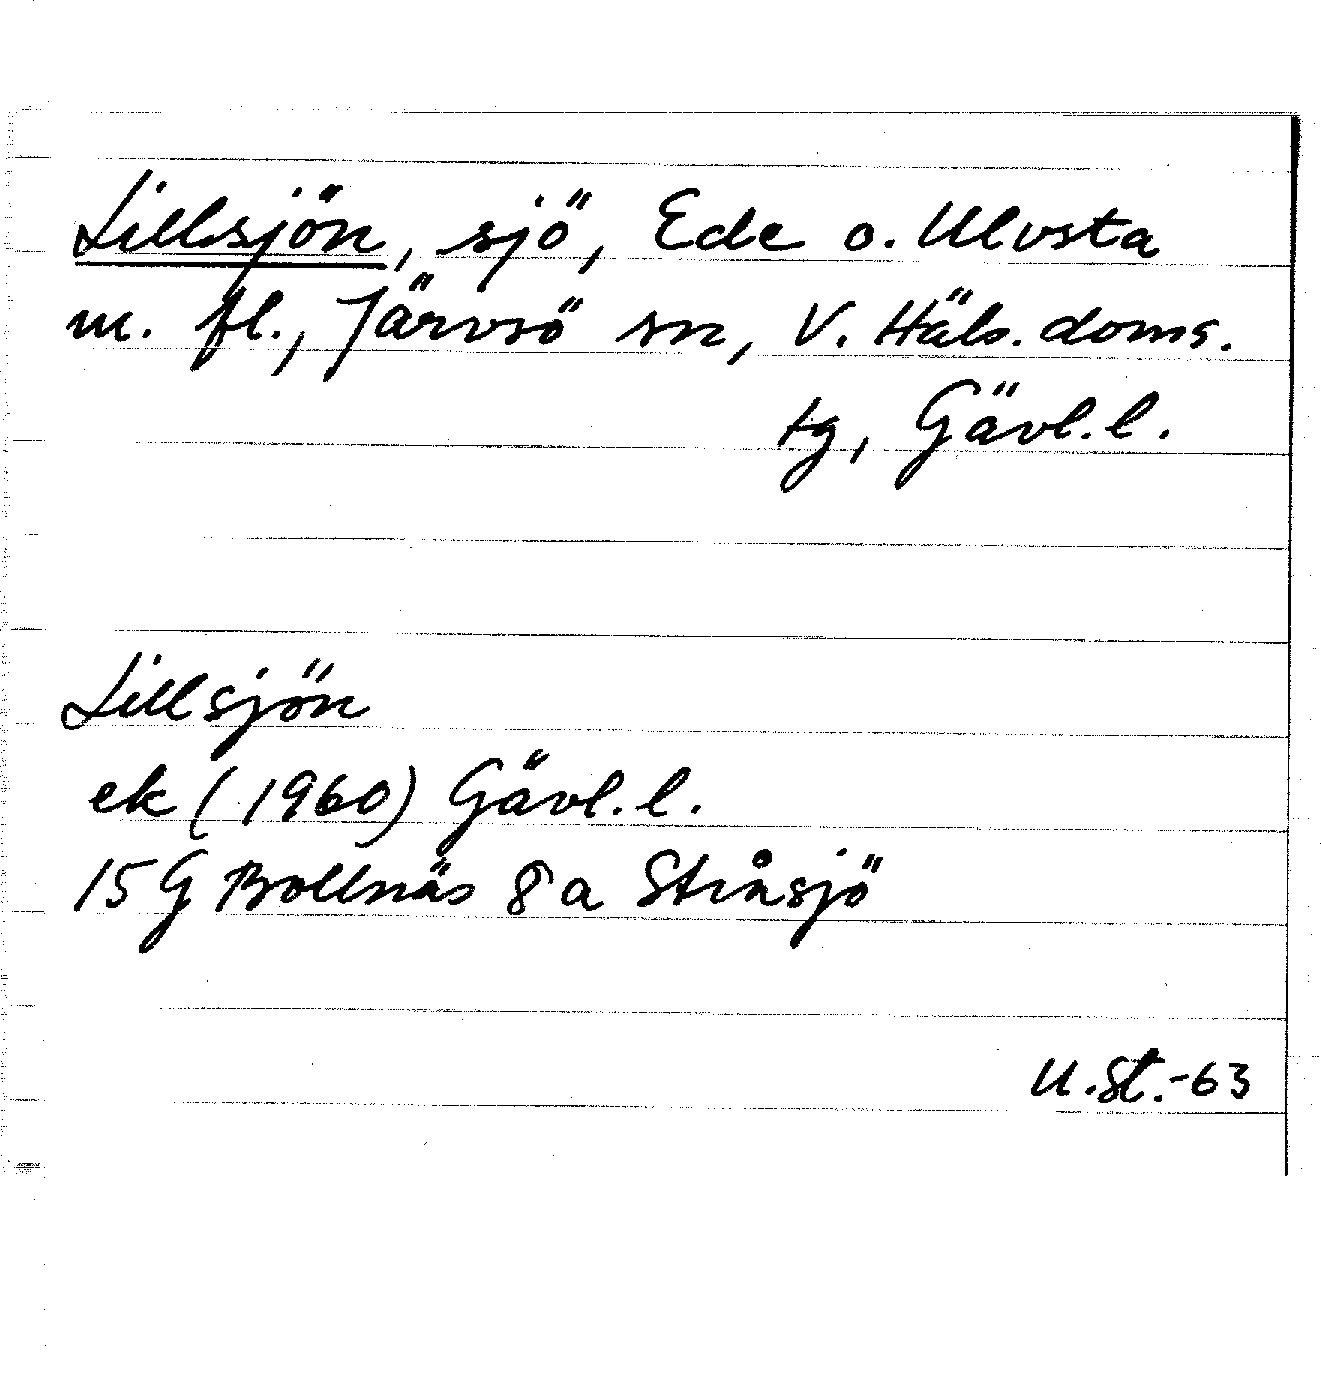 Lillsjön, sjö, Ede o. Ulvsta
m. fl., Järvsö sn, V. Häls. doms.
tg, Gävl. l.
Lillsjön
ek (1960) Gävl. l.
15 G Bollnäs 8 a Stråsjö
U. St. -63